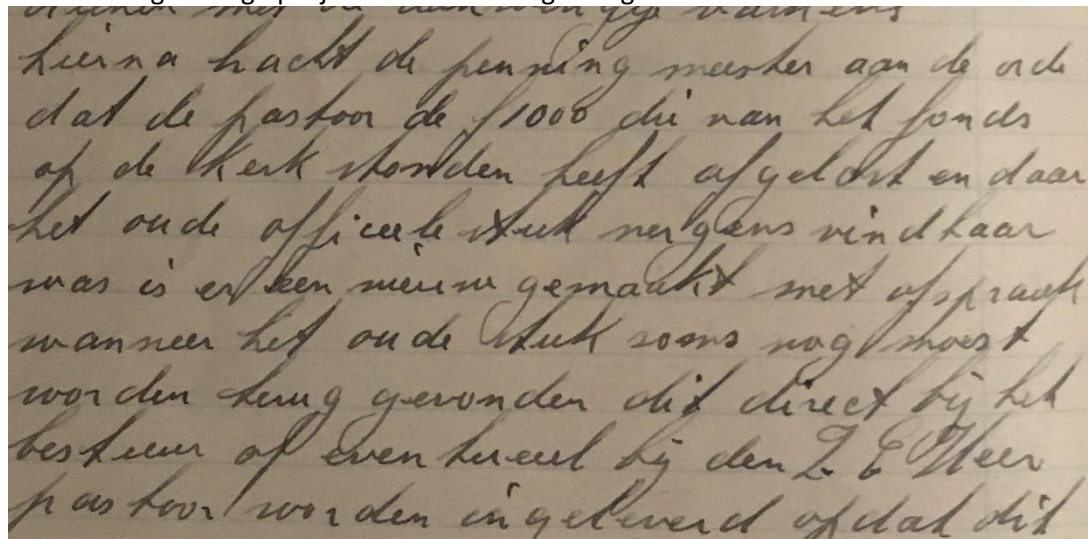 hierna bracht de penning meester aan de orde
dat de pastoor de f 1000 die van het fonds
op de Kerk stonden heeft afgelost en daar
het oude officiele stuk nergens vindbaar
was is er een nieuw gemaakt met afspraak
wanneer het oude stuk soms nog moest
worden terug gevonden dit direct bij het
bestuur of eventueel bij den Z. E. Heer
pastoor worden ingeleverd opdat dit